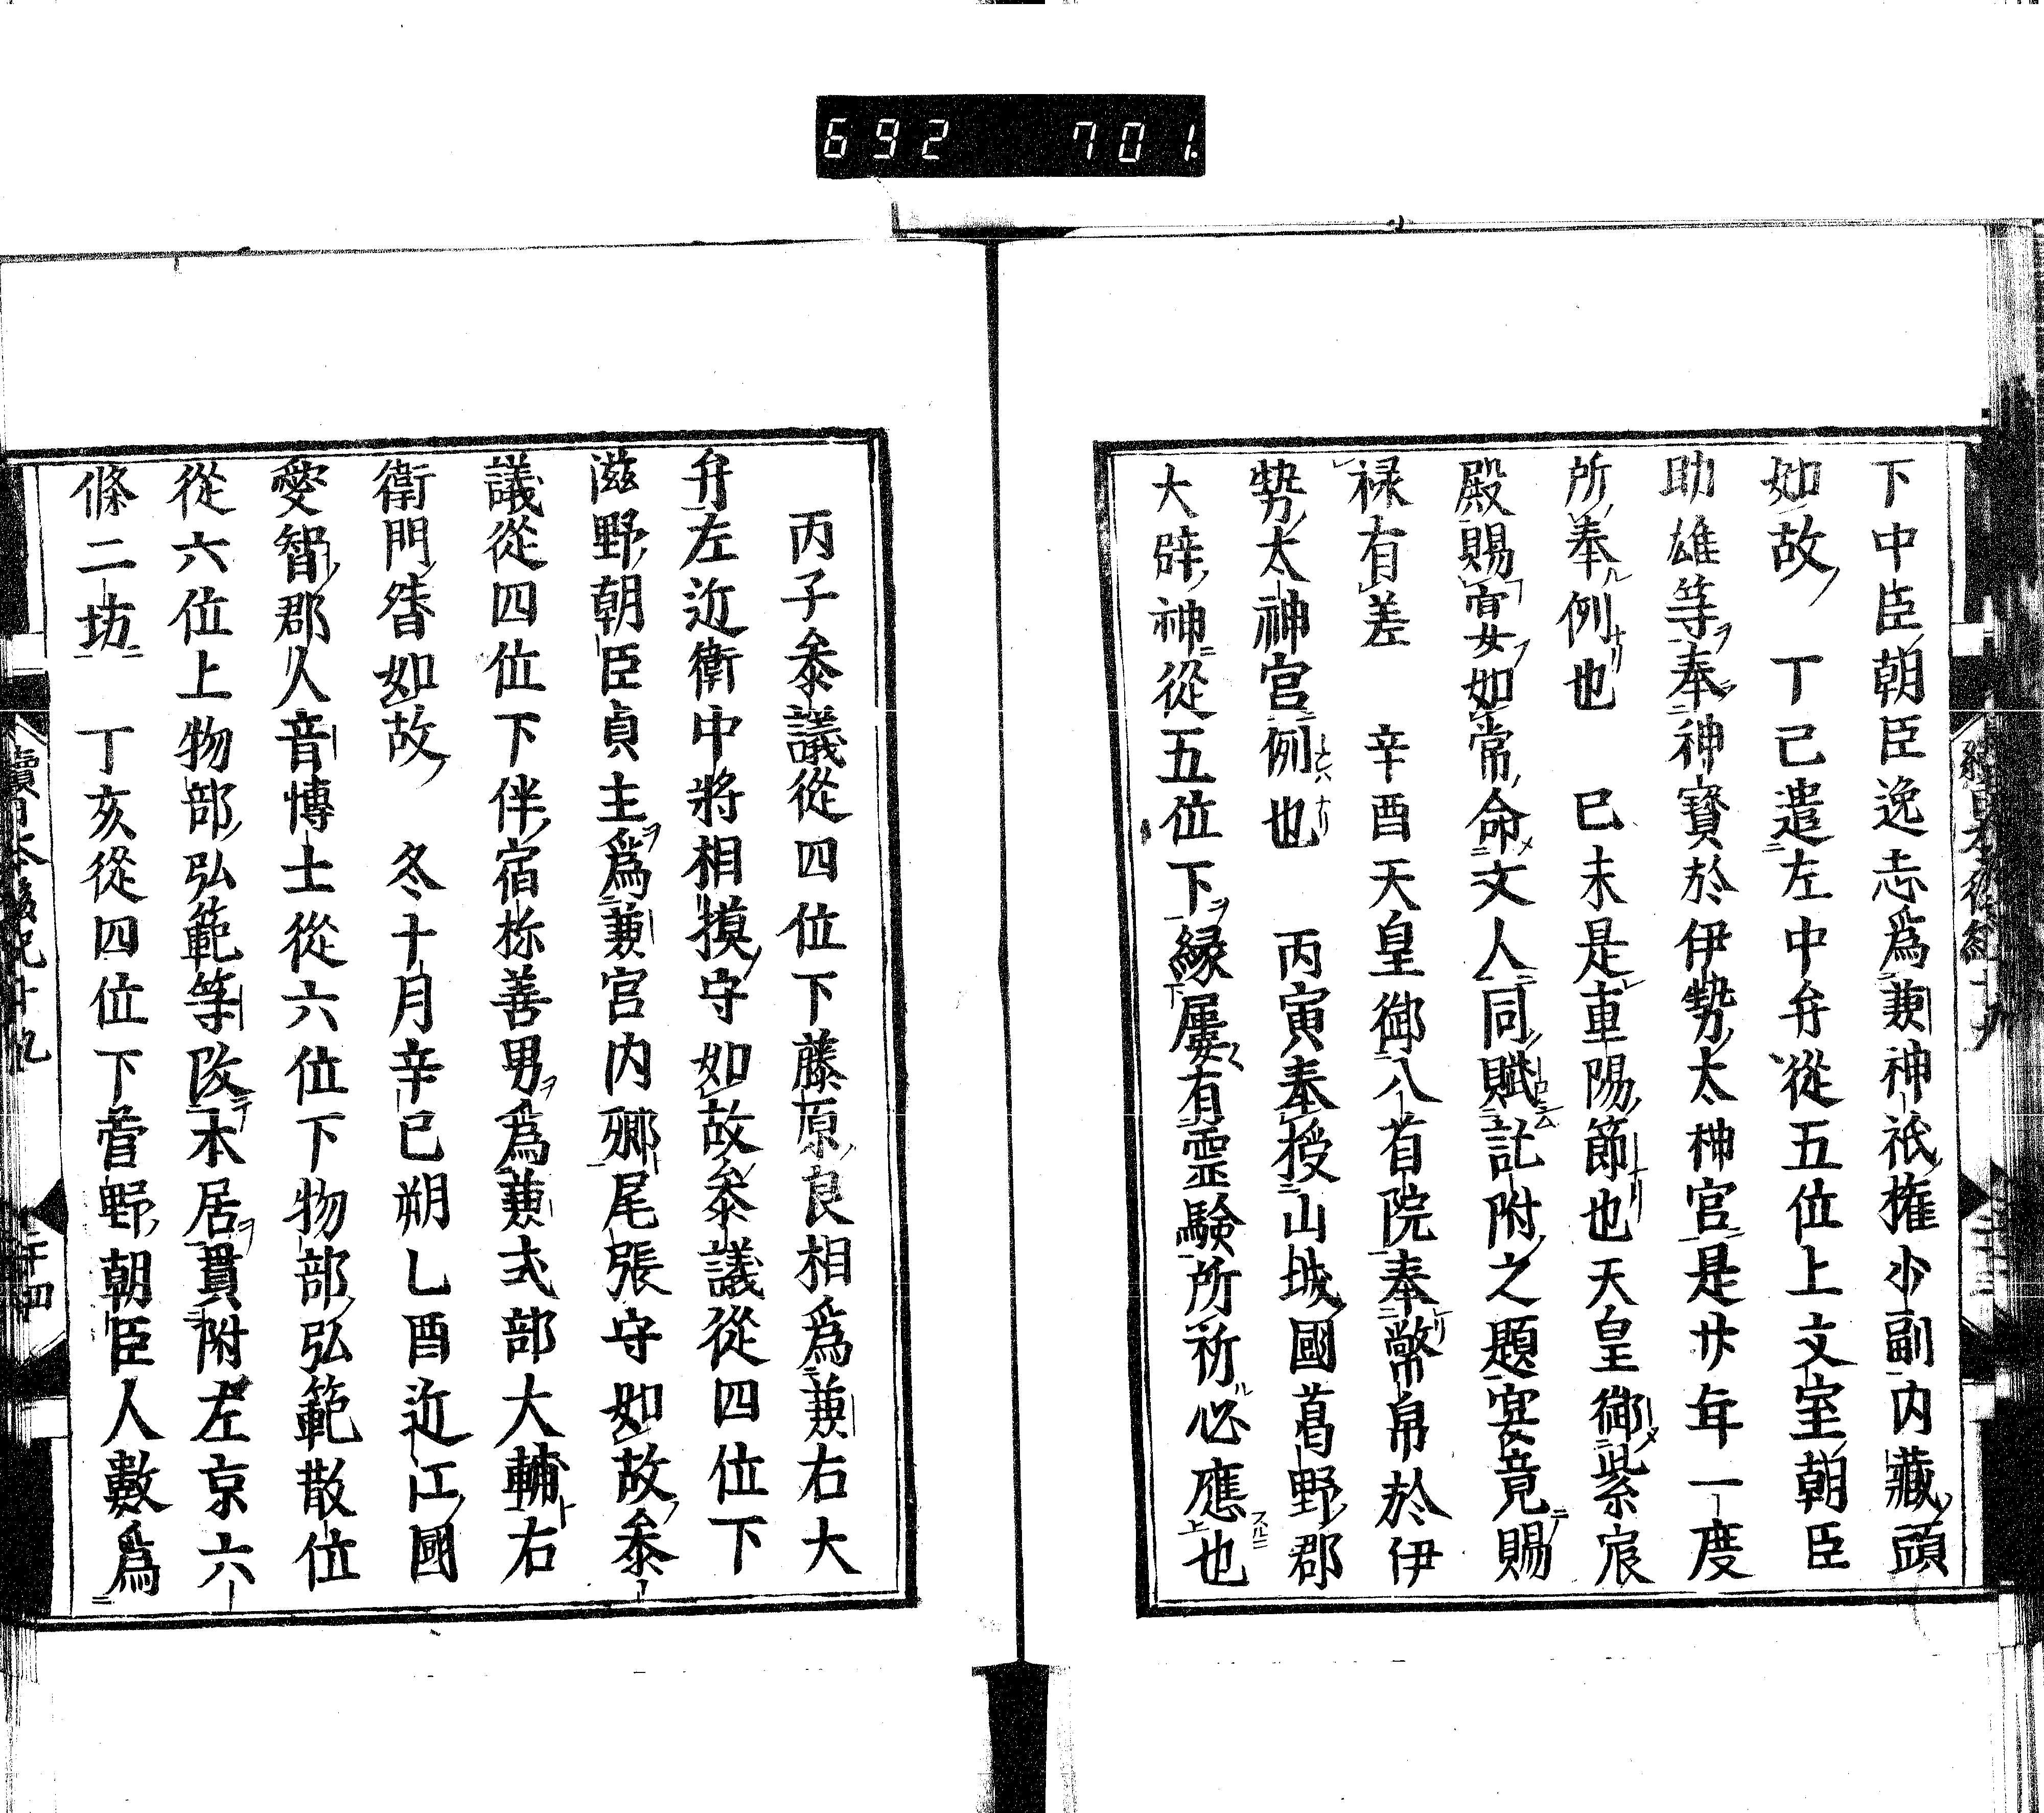 692 701
下中臣朝臣逸志爲兼神祇權少副内藏頭
如故 丁巳遣左中弁從五位上文室朝臣
助雄等奉神寳於伊勢太神宮是廿年一度
所奉例也 己未是重陽節也天皇御紫宸
殿賜宴如常命文人同賦託附之題宴竟賜
禄有差 辛酉天皇御八省院奉幣帛於伊
勢太神宮例也 丙寅奉授山城國葛野郡
大辟神從五位下縁屢有霊驗所祈必應也
丙子叅議從四位下藤原良相爲兼右大
弁左近衛中將相摸守如故叅議從四位下
滋野朝臣貞主爲兼宮内卿尾張守如故叅
議從四位下伴宿祢善男爲兼式部大輔右
衛門督如故 冬十月辛巳朔乙酉近江國
愛智郡人音博士從六位下物部弘範散位
從六位上物部弘範等改本居貫附左京六
條二坊 丁亥從四位下菅野朝臣人數爲
續日本後紀十九 二十四